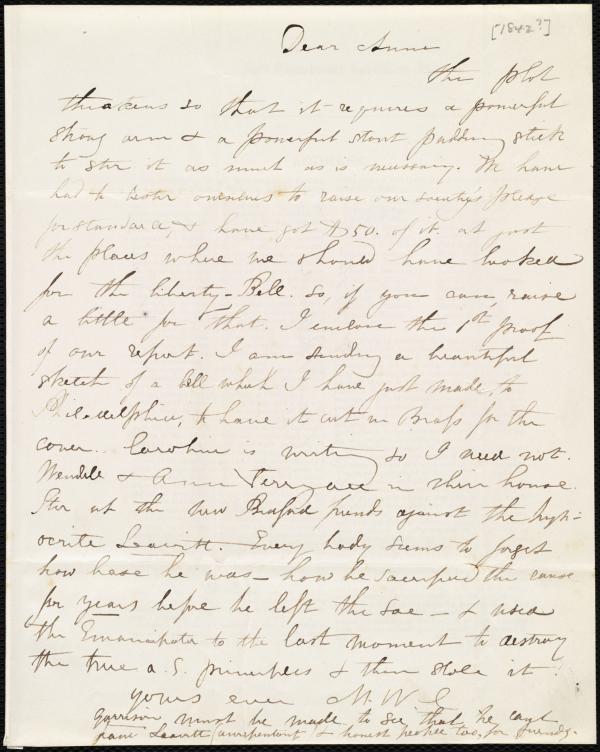 [1842?]
Dear Anne
the plot
thickens so that it requires a powerful
strong arm & a powerful stout pudding stick
to stir it as much as is necessary. We have
had to bestir ourselves to raise our society's pledge
for standard, & have got $50. of it. at just
the places where we should have looked
for the Liberty-Bell. So, if you can, raise
a little for that. I enclose the 1st proof
of our report. I am sending a beautiful
sketch of a bell which I have just made, to
Philadelphia, to have it cut in Brass for the
cover. Caroline is writing so I need not.
Wendell & Ann Terry are in their house.
Stir up the New Bedford friends against the hyp-
ocrite Leavitt. Every body seems to forget
how base he was - how he sacrificed the cause
for years before he left the Soc - & used
the Emancipator to the last moment to destroy
the true a. S. principles & then stole it!
yours ever M W C
Garrison must be made to see that he can't
have Leavitt (unrepentant) & honest people too, for friends.